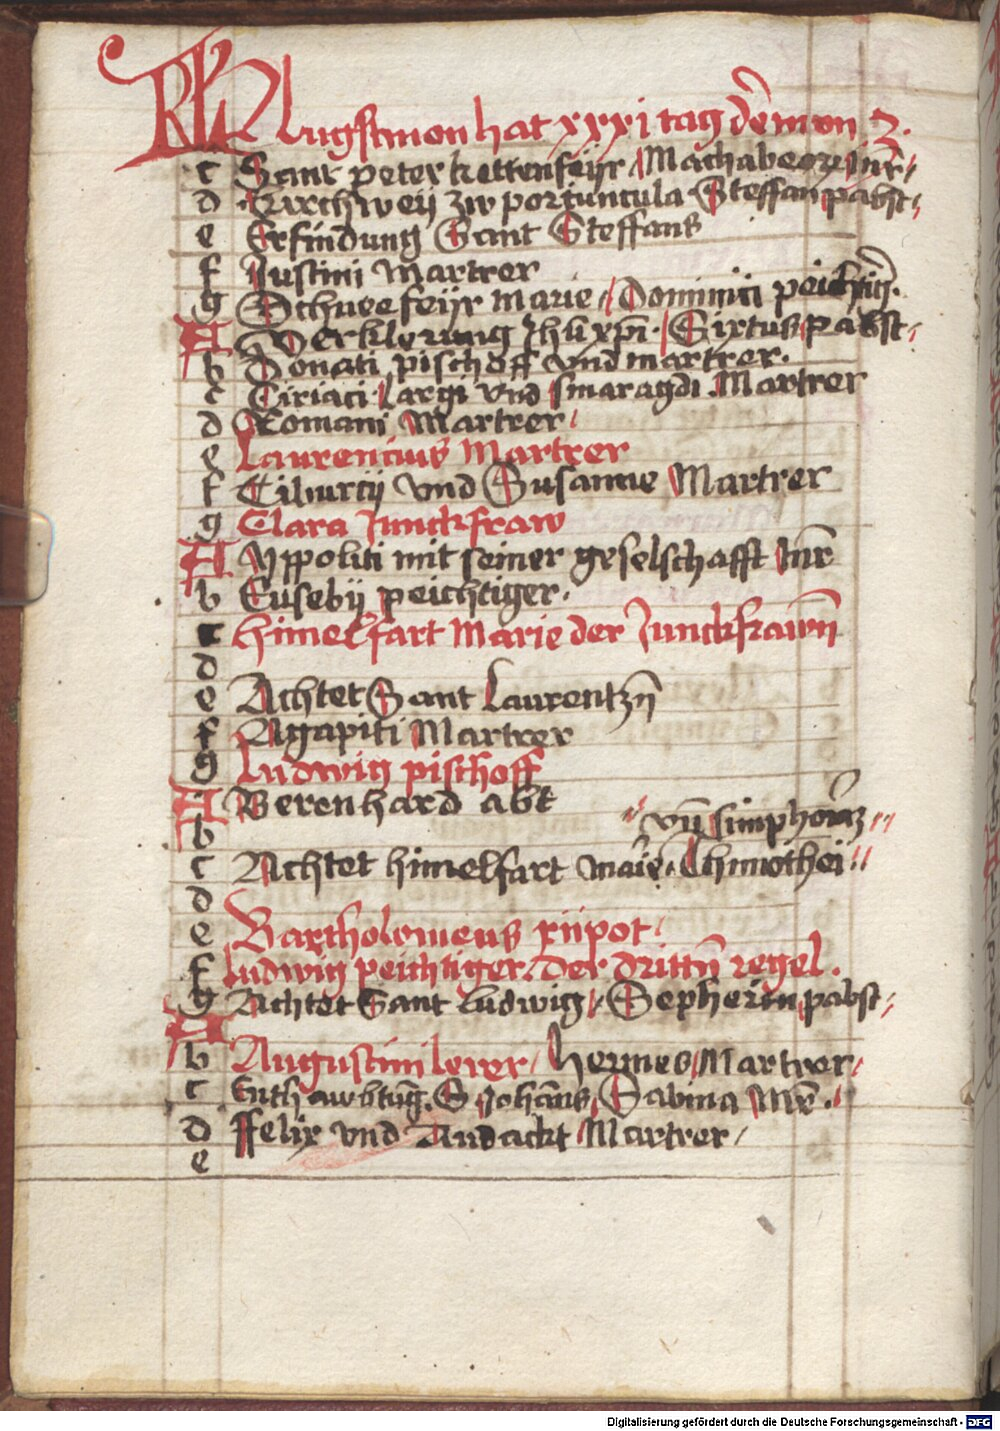 KL Augstmon hat xxxi tag der mon 3.
c Sant peter kettenfeyr Machabeorum mr̄
d Kirchweij zw portiuncula Steffan pabst
e Erfindung Sant Steffans
f Justini Martrer
g Schneefeyr Marie Dominici peichtiger
A Verklerung Jhū xp̄i. Sixtus pabst
b Donati pischoff vnd martrer.
c Ciriaci Largi vnd smaragdi Martrer
d Romani Martrer
e Laurencius Martrer
f Tiburcij vnd Susanne Martrer
g Clara Junckfraw
A Yppoliti mit seiner geselschafft Mr̄
b Eusebij peichtiger.
c himelfart Marie der Junckfrawn̄
d
e Achtet Sant Laurentzn̄
f Agapiti Martrer
g Ludwig pischoff
A Berenhard abt
b vn̄ simphoriaz
c Achtet himelfart marie Thimothei
d
e Bartholomeus xiipot
f Ludwig peichtiger. der drittn̄ regel.
g Achtet Sant ludwig Sepherin pabst
A
b Augustini lerer hermes Martrer
c Enthawbtūg. S Johan̄s Sabina Mr̄.
d Felix vnd Andackt Martrer
e
Digitalisierung gefördert durch die Deutsche Forschungsgemeinschaft - DFG